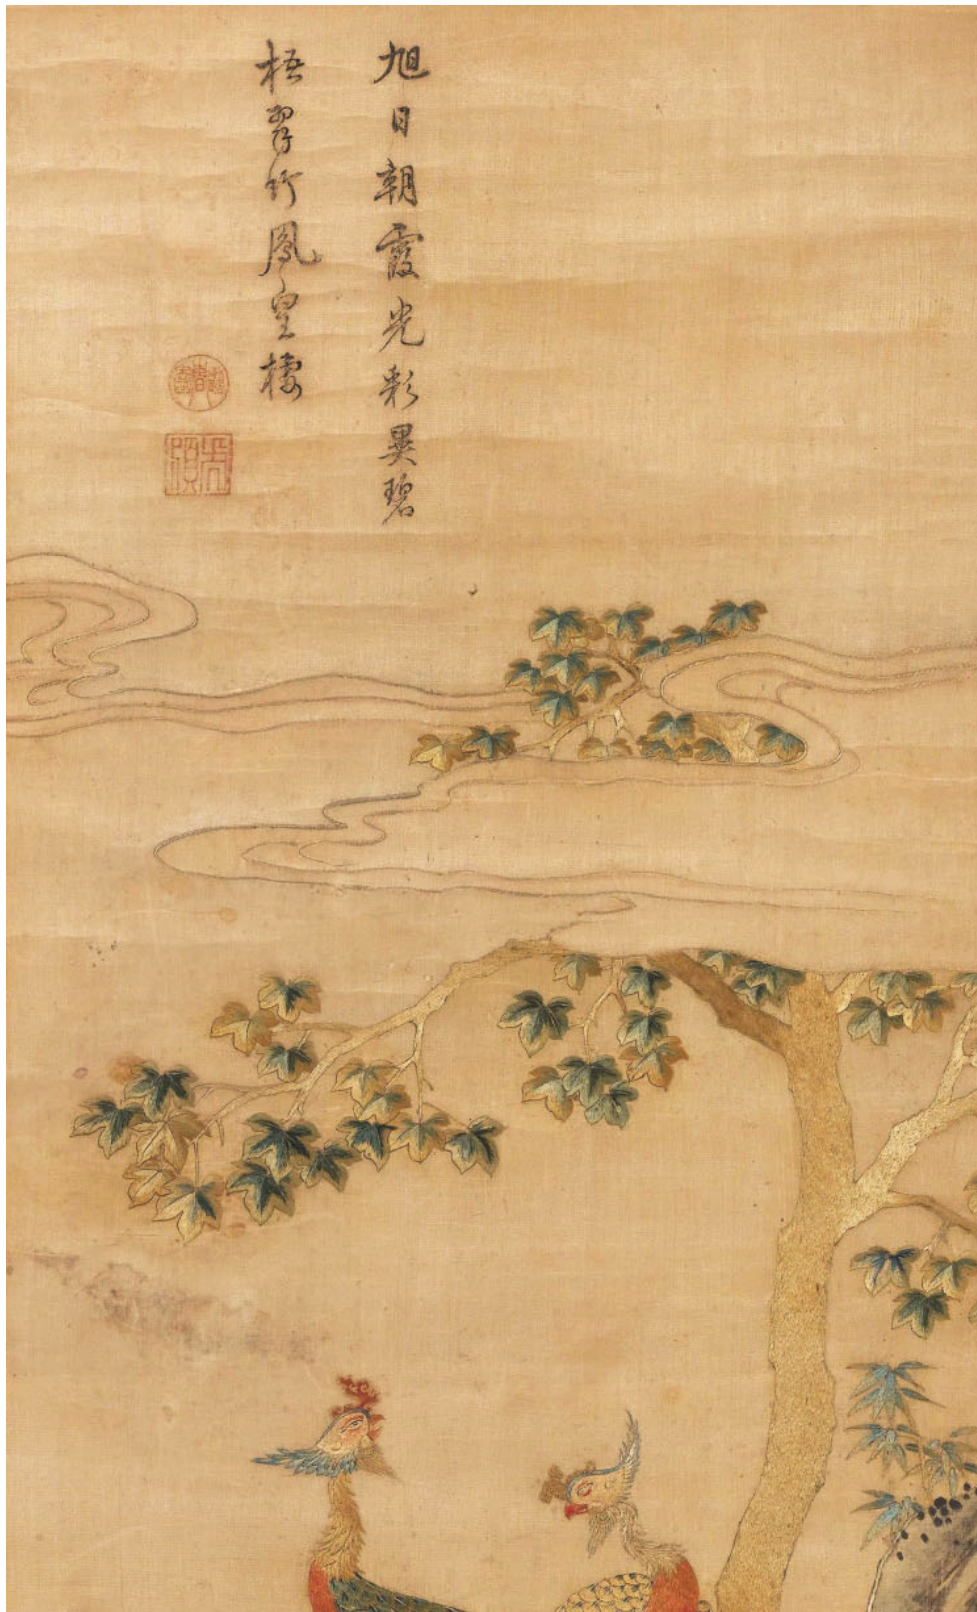 旭日朝霞光彩異碧
梧翠竹鳳皇棲